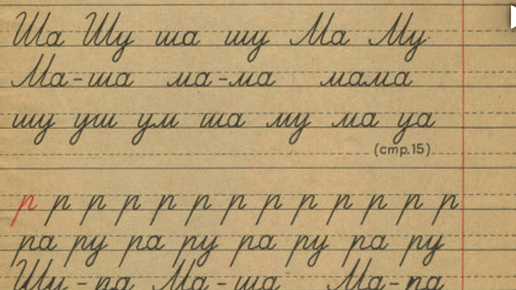 Ша Шу ша шу Ма Му
Ма-ша ма-ма мама
шу уш ум ша му ма уа
(стр.15)
р р р р р р р р р р р р р
ра ру ра ру ра ру ра ру
Шу-ра Ма-ша Ма-ра